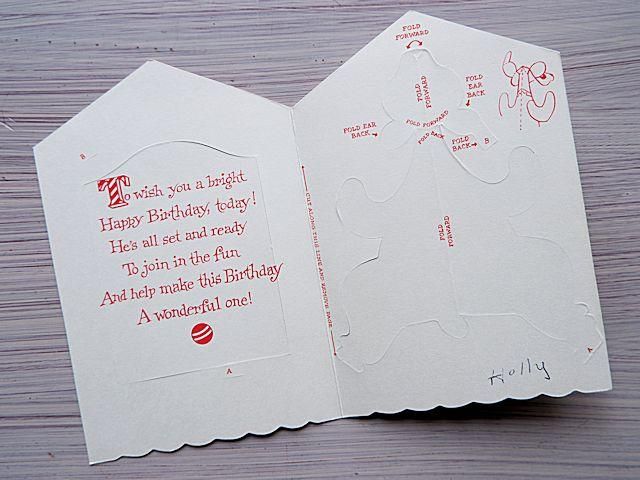 B
To wish you a bright
Happy Birthday, today!
He's all set and ready
To join in the fun
And help make this Birthday
A wonderful one!
A
CUT ALONG THIS LINE AND REMOVE PAGE
FOLD
FORWARD
FOLD
FORWARD
FOLD
EAR
BACK
FOLD EAR
BACK
FOLD FORWARD
FOLD BACK
FOLD
BACK
B
FOLD
FORWARD
A
Holly